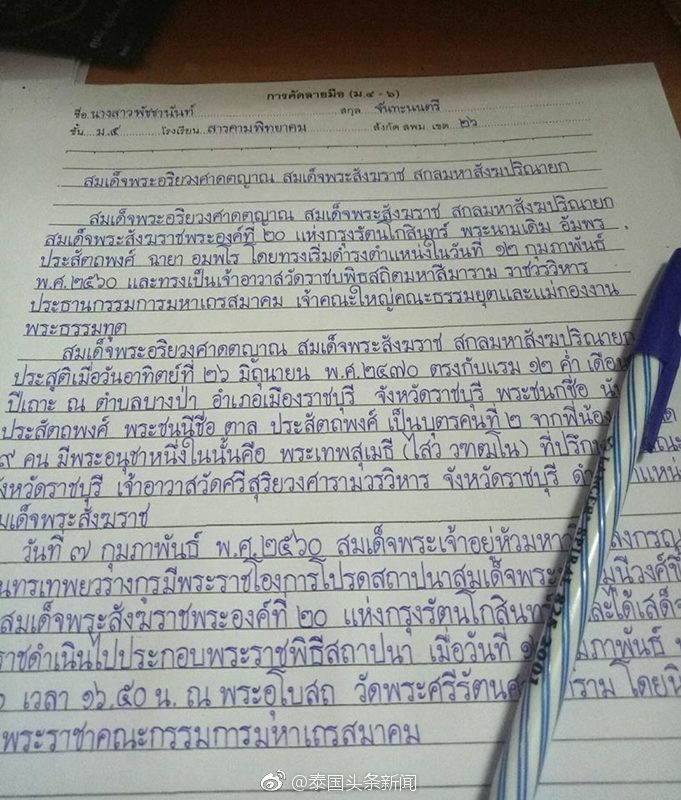 การคัดลายมือ (ม.๔ - ๖)
ชื่อ นางสาวพัชชานันท์ สกุล จันทะนนตรี
ชั้น ม.๕ โรงเรียน สารคามพิทยาคม สังกัด สพม. เขต ๒๖
สมเด็จพระอริยวงศาคตญาณ สมเด็จพระสังฆราช สกลมหาสังฆปริณายก
สมเด็จพระอริยวงศาคตญาณ สมเด็จพระสังฆราช สกลมหาสังฆปริณายก
สมเด็จพระสังฆราชพระองค์ที่ ๒๐ แห่งกรุงรัตนโกสินทร์ พระนามเดิม อัมพร
ประสัตถพงศ์ ฉายา อมฺพโร โดยทรงเริ่มดำรงตำแหน่งในวันที่ ๑๒ กุมภาพันธ์
พ.ศ.๒๕๖๐ และทรงเป็นเจ้าอาวาสวัดราชบพิธสถิตมหาสีมาราม ราชวรวิหาร
ประธานกรรมการมหาเถรสมาคม เจ้าคณะใหญ่คณะธรรมยุตและแม่กองงาน
พระธรรมทูต
สมเด็จพระอริยวงศาคตญาณ สมเด็จพระสังฆราช สกลมหาสังฆปริณายก
ประสูติเมื่อวันอาทิตย์ที่ ๒๖ มิถุนายน พ.ศ.๒๔๗๐ ตรงกับแรม ๑๒ ค่ำ เดือน
ปีเถาะ ณ ตำบลบางป่า อำเภอเมืองราชบุรี จังหวัดราชบุรี พระชนกชื่อ นั
ประสัตถพงศ์ พระชนนีชื่อ ตาล ประสัตถพงศ์ เป็นบุตรคนที่ ๒ จากพี่น้อง
๙ คน มีพระอนุชาหนึ่งในนั้นคือ พระเทพสุเมธี (ไสว วฑฺฒโน) ที่ปรึก
ังหวัดราชบุรี เจ้าอาวาสวัดศรีสุริยวงศารามวรวิหาร จังหวัดราชบุรี ดำ แหน
มเด็จพระสังฆราช
วันที่ ๗ กุมภาพันธ์ พ.ศ.๒๕๖๐ สมเด็จพระเจ้าอยู่หัวมหา ลงกรณ
นทรเทพยวรางกูรมีพระราชโองการโปรดสถาปนาสมเด็จพระ มุนีวงศ์
สมเด็จพระสังฆราชพระองค์ที่ ๒๐ แห่งกรุงรัตนโกสินทร์ ละได้เสด็จ
ราชดำเนินไปประกอบพระราชพิธีสถาปนา เมื่อวันที่ มภาพันธ์
เวลา ๑๖.๕๐ น. ณ พระอุโบสถ วัดพระศรีรัตนศ าราม โดย
พระราชาคณะกรรมการมหาเถรสมาคม
@泰国头条新闻